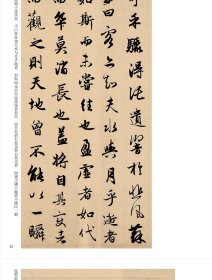 乎驟得託遺響於悲風蘇
子曰客亦知夫水與月乎逝者
如斯而未嘗往也盈虛者如代
而卒莫消長也蓋將自其變者
而觀之則天地曾不能以一瞬